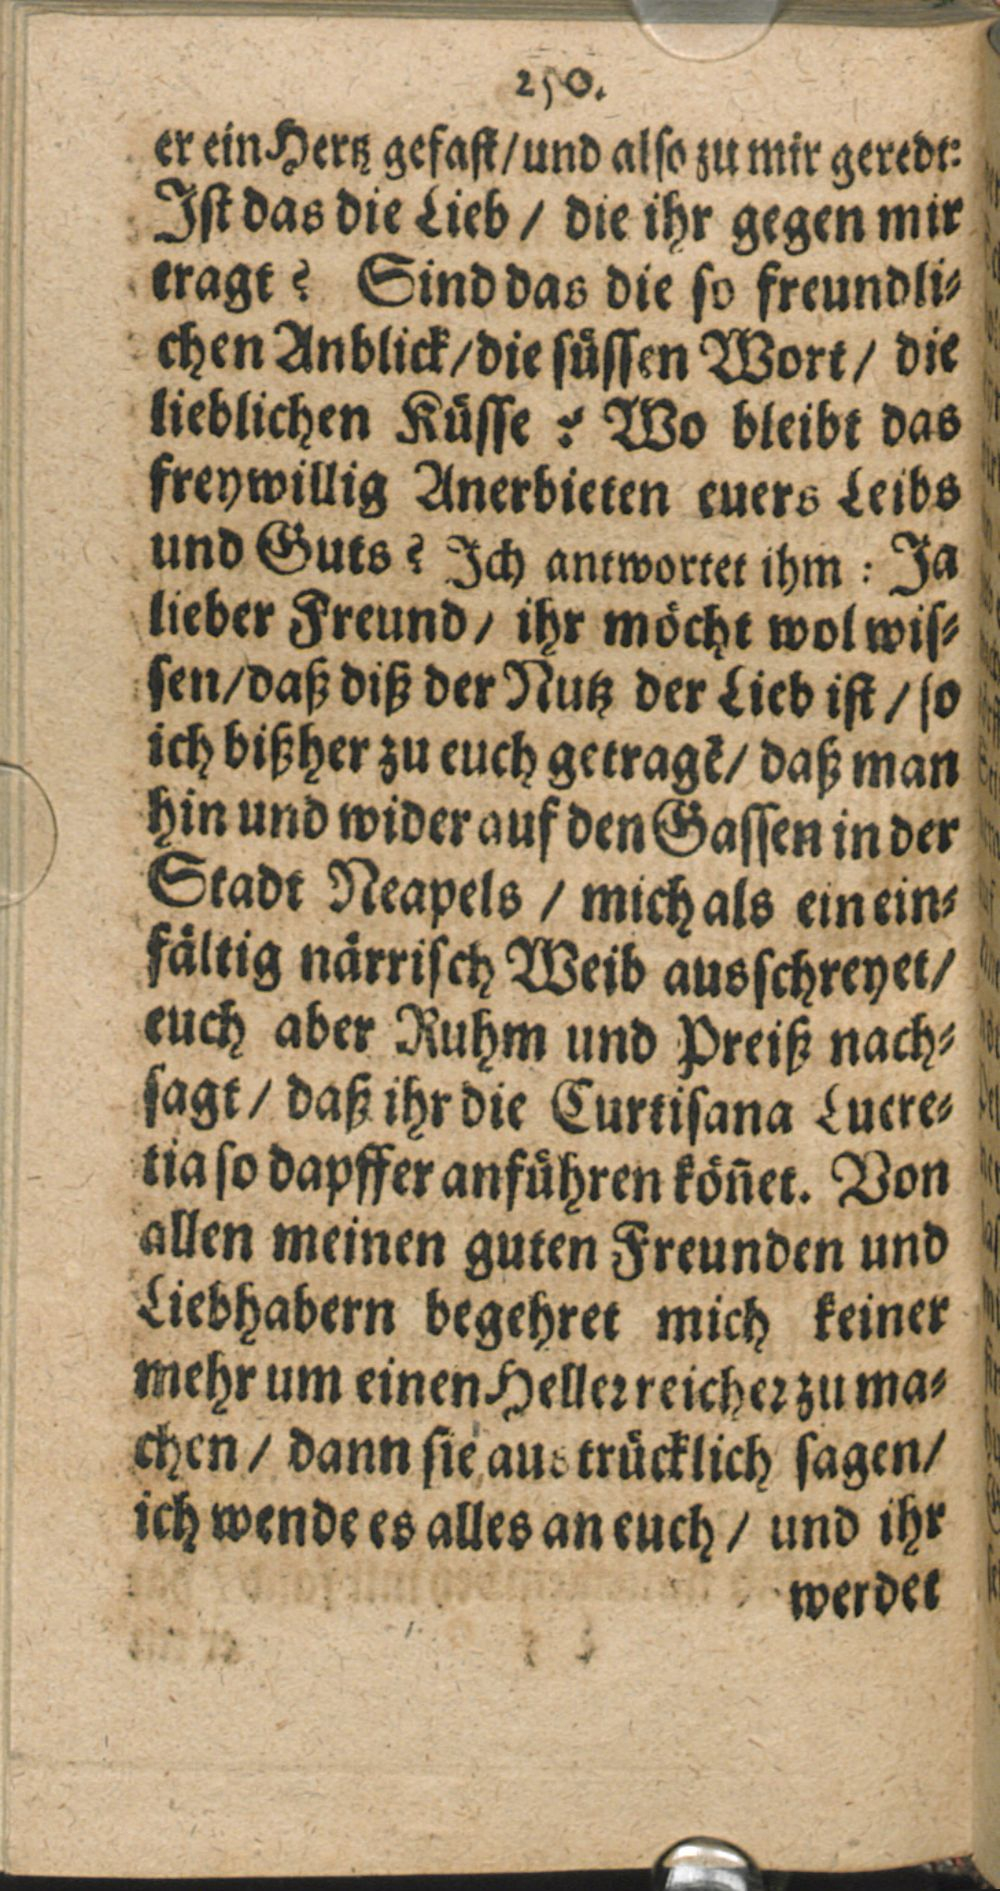 250.
er ein Hertz gefast/und also zu mir geredt:
Ist das die Lieb / die ihr gegen mir
tragt? Sind das die so freundli-
chen Anblick/die süssen Wort/ die
lieblichen Küsse? Wo bleibt das
freywillig Anerbieten euers Leibs
und Guts? Ich antwortet ihm: Ja
lieber Freund/ ihr möcht wol wis-
sen/daß diß der Nutz der Lieb ist/so
ich bißher zu euch getragē/ daß man
hin und wider auf den Gassen in der
Stadt Neapels / mich als ein ein-
fältig närrisch Weib ausschreyet/
euch aber Ruhm und Preiß nach-
sagt/ daß ihr die Curtisana Lucre-
tia so dapffer anführen kön̄et. Von
allen meinen guten Freunden und
Liebhabern begehret mich keiner
mehr um einen Heller reicher zu ma-
chen/ dann sie austrücklich sagen/
ich wende es alles an euch/ und ihr
werdet